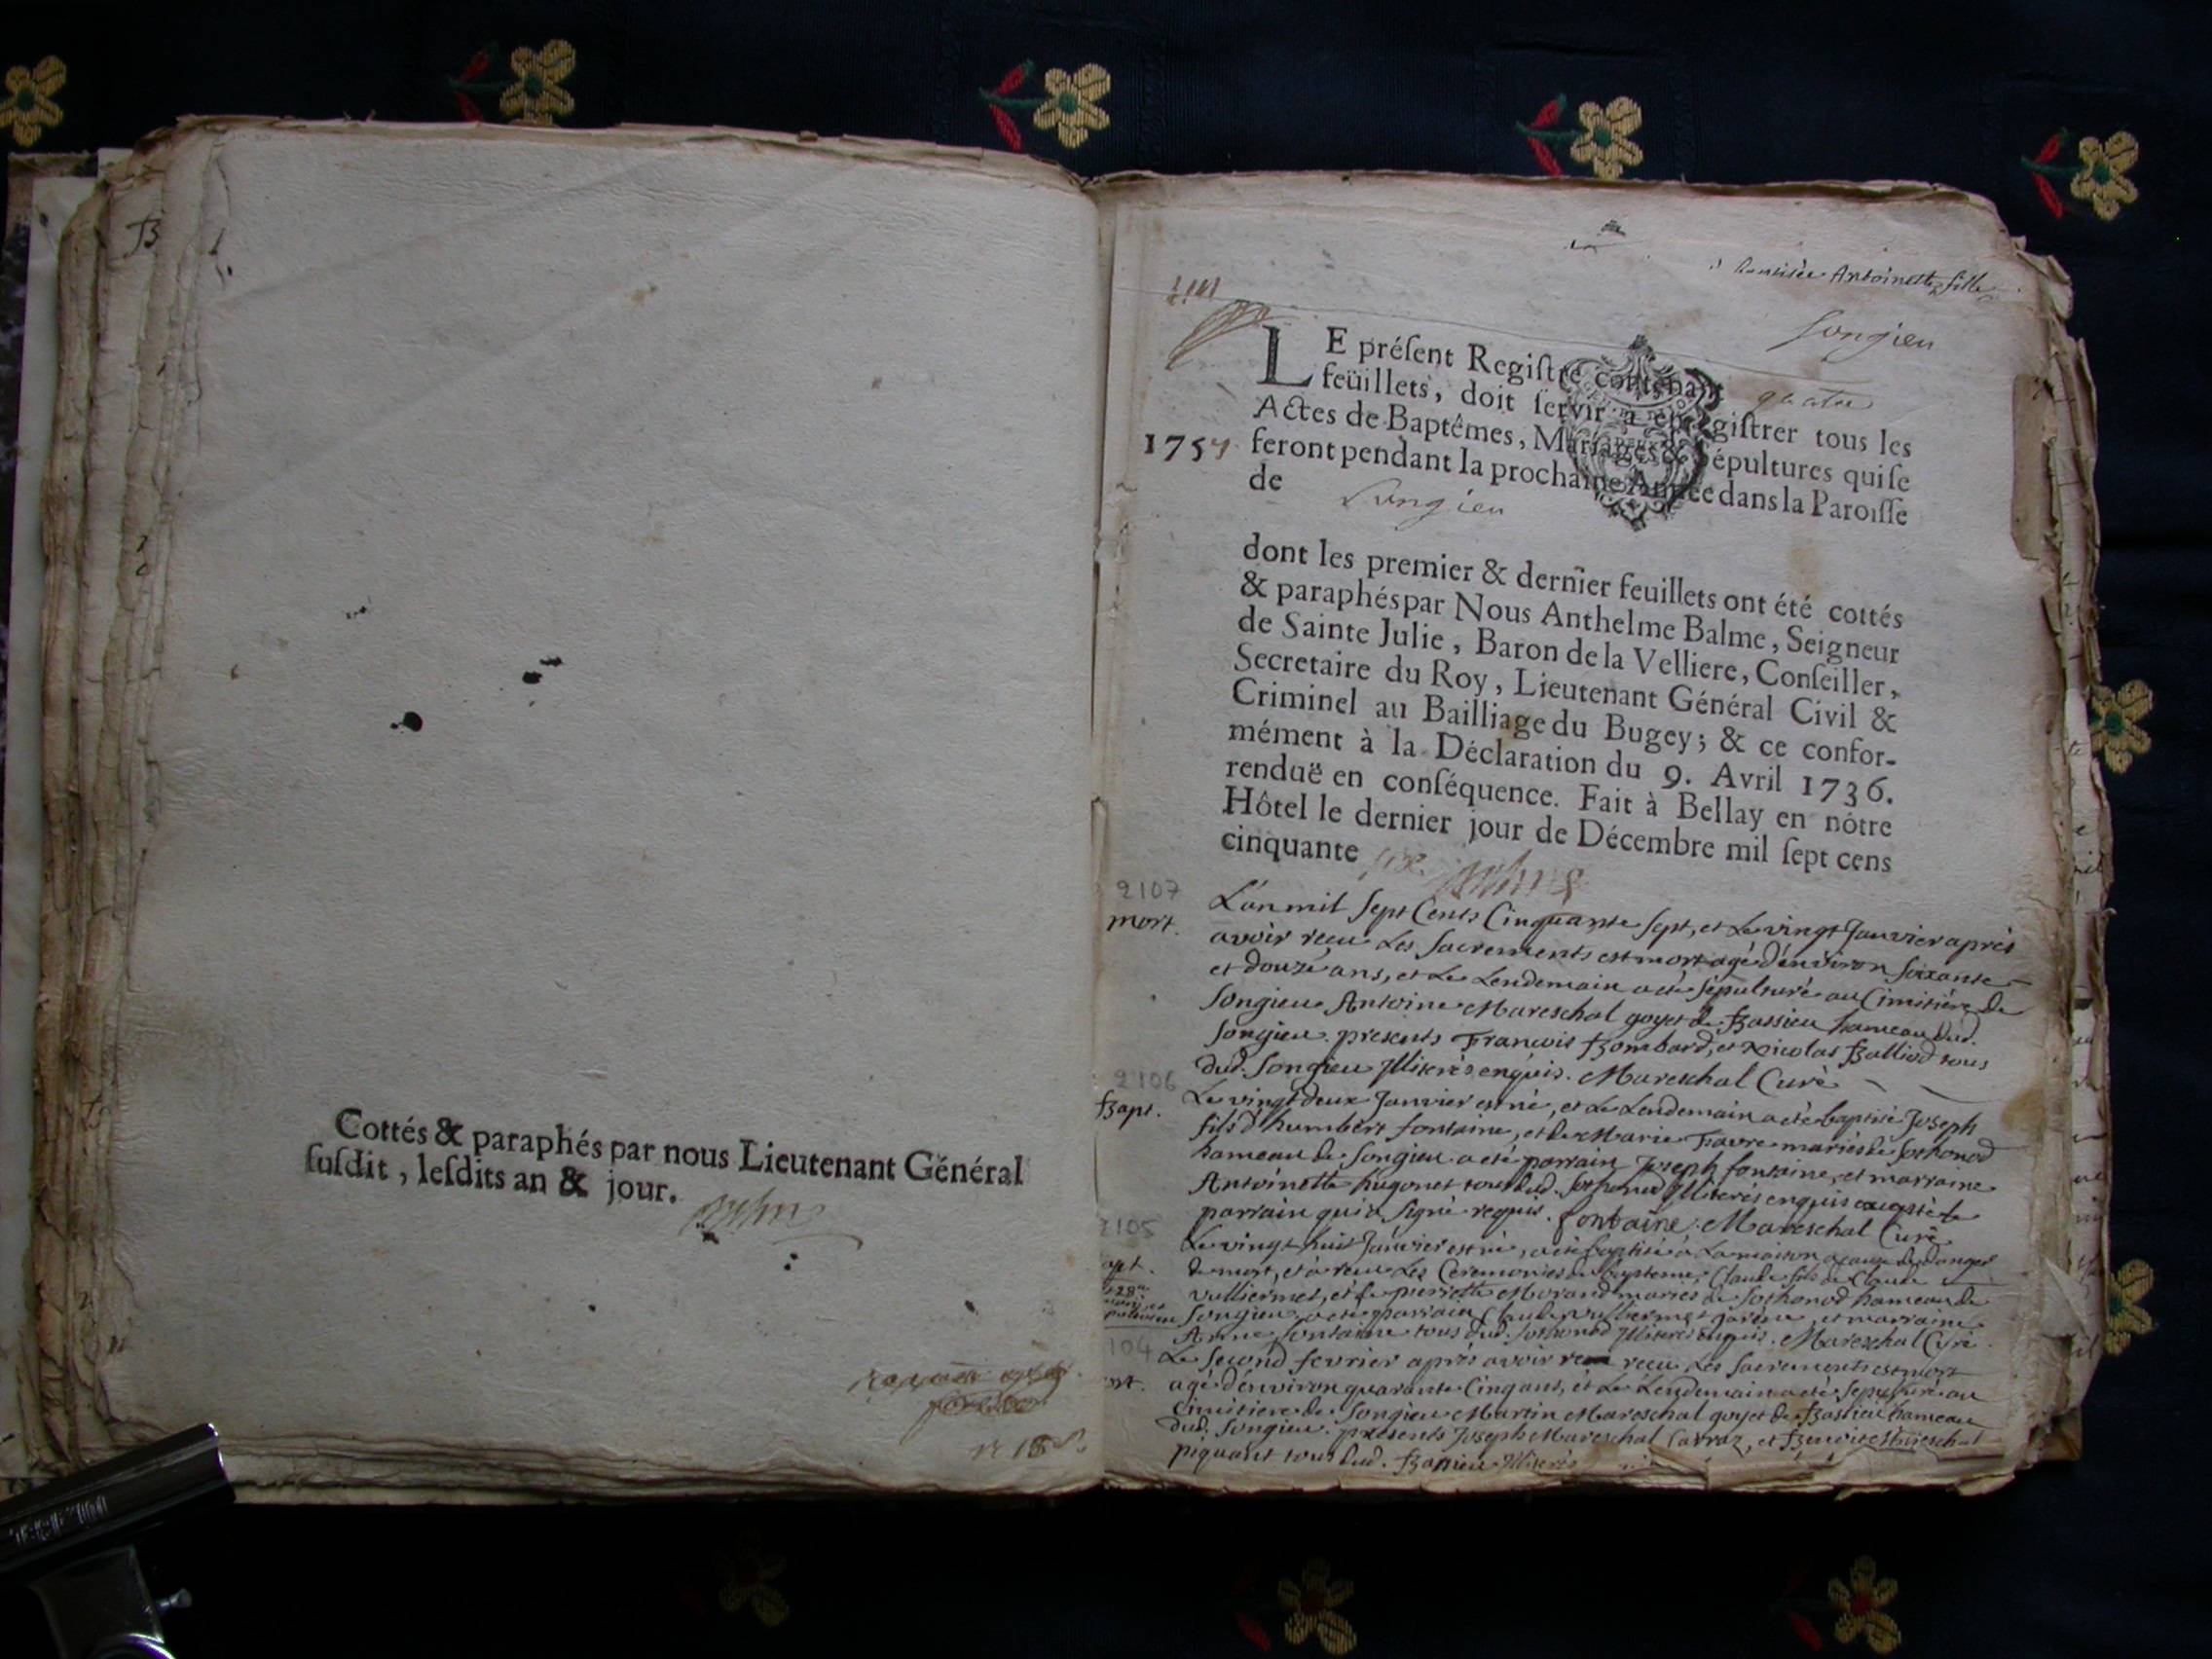 Cottés & paraphés par nous Lieutenant Général
ſuſdit, leſdits an & jour.
Antoinette fille
Songieu
LE préſent Regiſtre contenant quatre
feüillets, doit ſervir à enregiſtrer tous les
Actes de Baptêmes, Mariages & Sépultures qui ſe
1757 feront pendant la prochaine Année dans la Paroiſſe
de Songieu
dont les premier & dernier feuillets ont été cottés
& paraphés par Nous Anthelme Balme, Seigneur
de Sainte Julie, Baron de la Velliere, Conſeiller,
Secretaire du Roy, Lieutenant Général Civil &
Criminel au Bailliage du Bugey; & ce confor-
mément à la Déclaration du 9. Avril 1736.
renduë en conſéquence. Fait à Bellay en nôtre
Hôtel le dernier jour de Décembre mil ſept cens
cinquante six. Balme
2107
mort.
L'an mil sept Cents Cinquante sept, et Le vingt Janvier après
avoir reçu Les Sacrements est mort agé d'environ soixante
et douze ans, et Le Lendemain a été sépulturé au Cimitière de
Songieu Antoine Mareschal goyet de Bassieu hameau dud.
Songieu. presents François Bombard, et Nicolas Balliod tous
dud. Songieu Illiterés enquis. Mareschal Curé
2106
Bapt.
Le vingt deux Janvier est né, et Le Lendemain a été baptisé Joseph
fils d'humbert fontaine, et de Marie Favre mariés de Sothonod
hameau de Songieu a été parrain Joseph fontaine, et marraine
Antoinette hugonet tous dud. Sothonod Illiterés enquis excepté le
parrain qui a signé requis. fontaine. Mareschal Curé
2105
Le vingt huit Janvier est né, a été baptisé à La maison à cause du danger
de mort, et a reçu Les Ceremonies du baptême, Claude fils de Claude
vulliermet, et de pierrette Morand mariés de Sothonod hameau de
Songieu. a été parrain Claude vulliermet, et marraine
Anne fontaine tous dud. Sothonod Illiterés enquis. Mareschal Curé
104
Le second fevrier après avoir reçu Les Sacrements est mort
agé d'environ quarante Cinq ans, et Le Lendemain a été sepulturé au
Cimitiere de Songieu Martin Mareschal goyet de Bassieu hameau
dud. Songieu. présents Joseph Mareschal Carraz, et Benoit Mareschal
piquant tous dud. Bassieu Illiterés